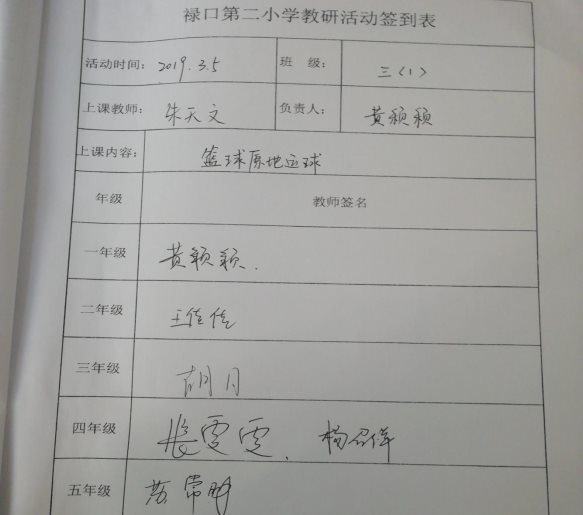 禄口第二小学教研活动签到表
活动时间: 2019.3.5 班 级: 三(1)
上课教师: 朱天文 负责人: 黄颖颖
上课内容: 篮球原地运球
年级 教师签名
一年级 黄颖颖.
二年级 王佳佳
三年级 胡月
四年级 张雯雯、杨
五年级 苏常